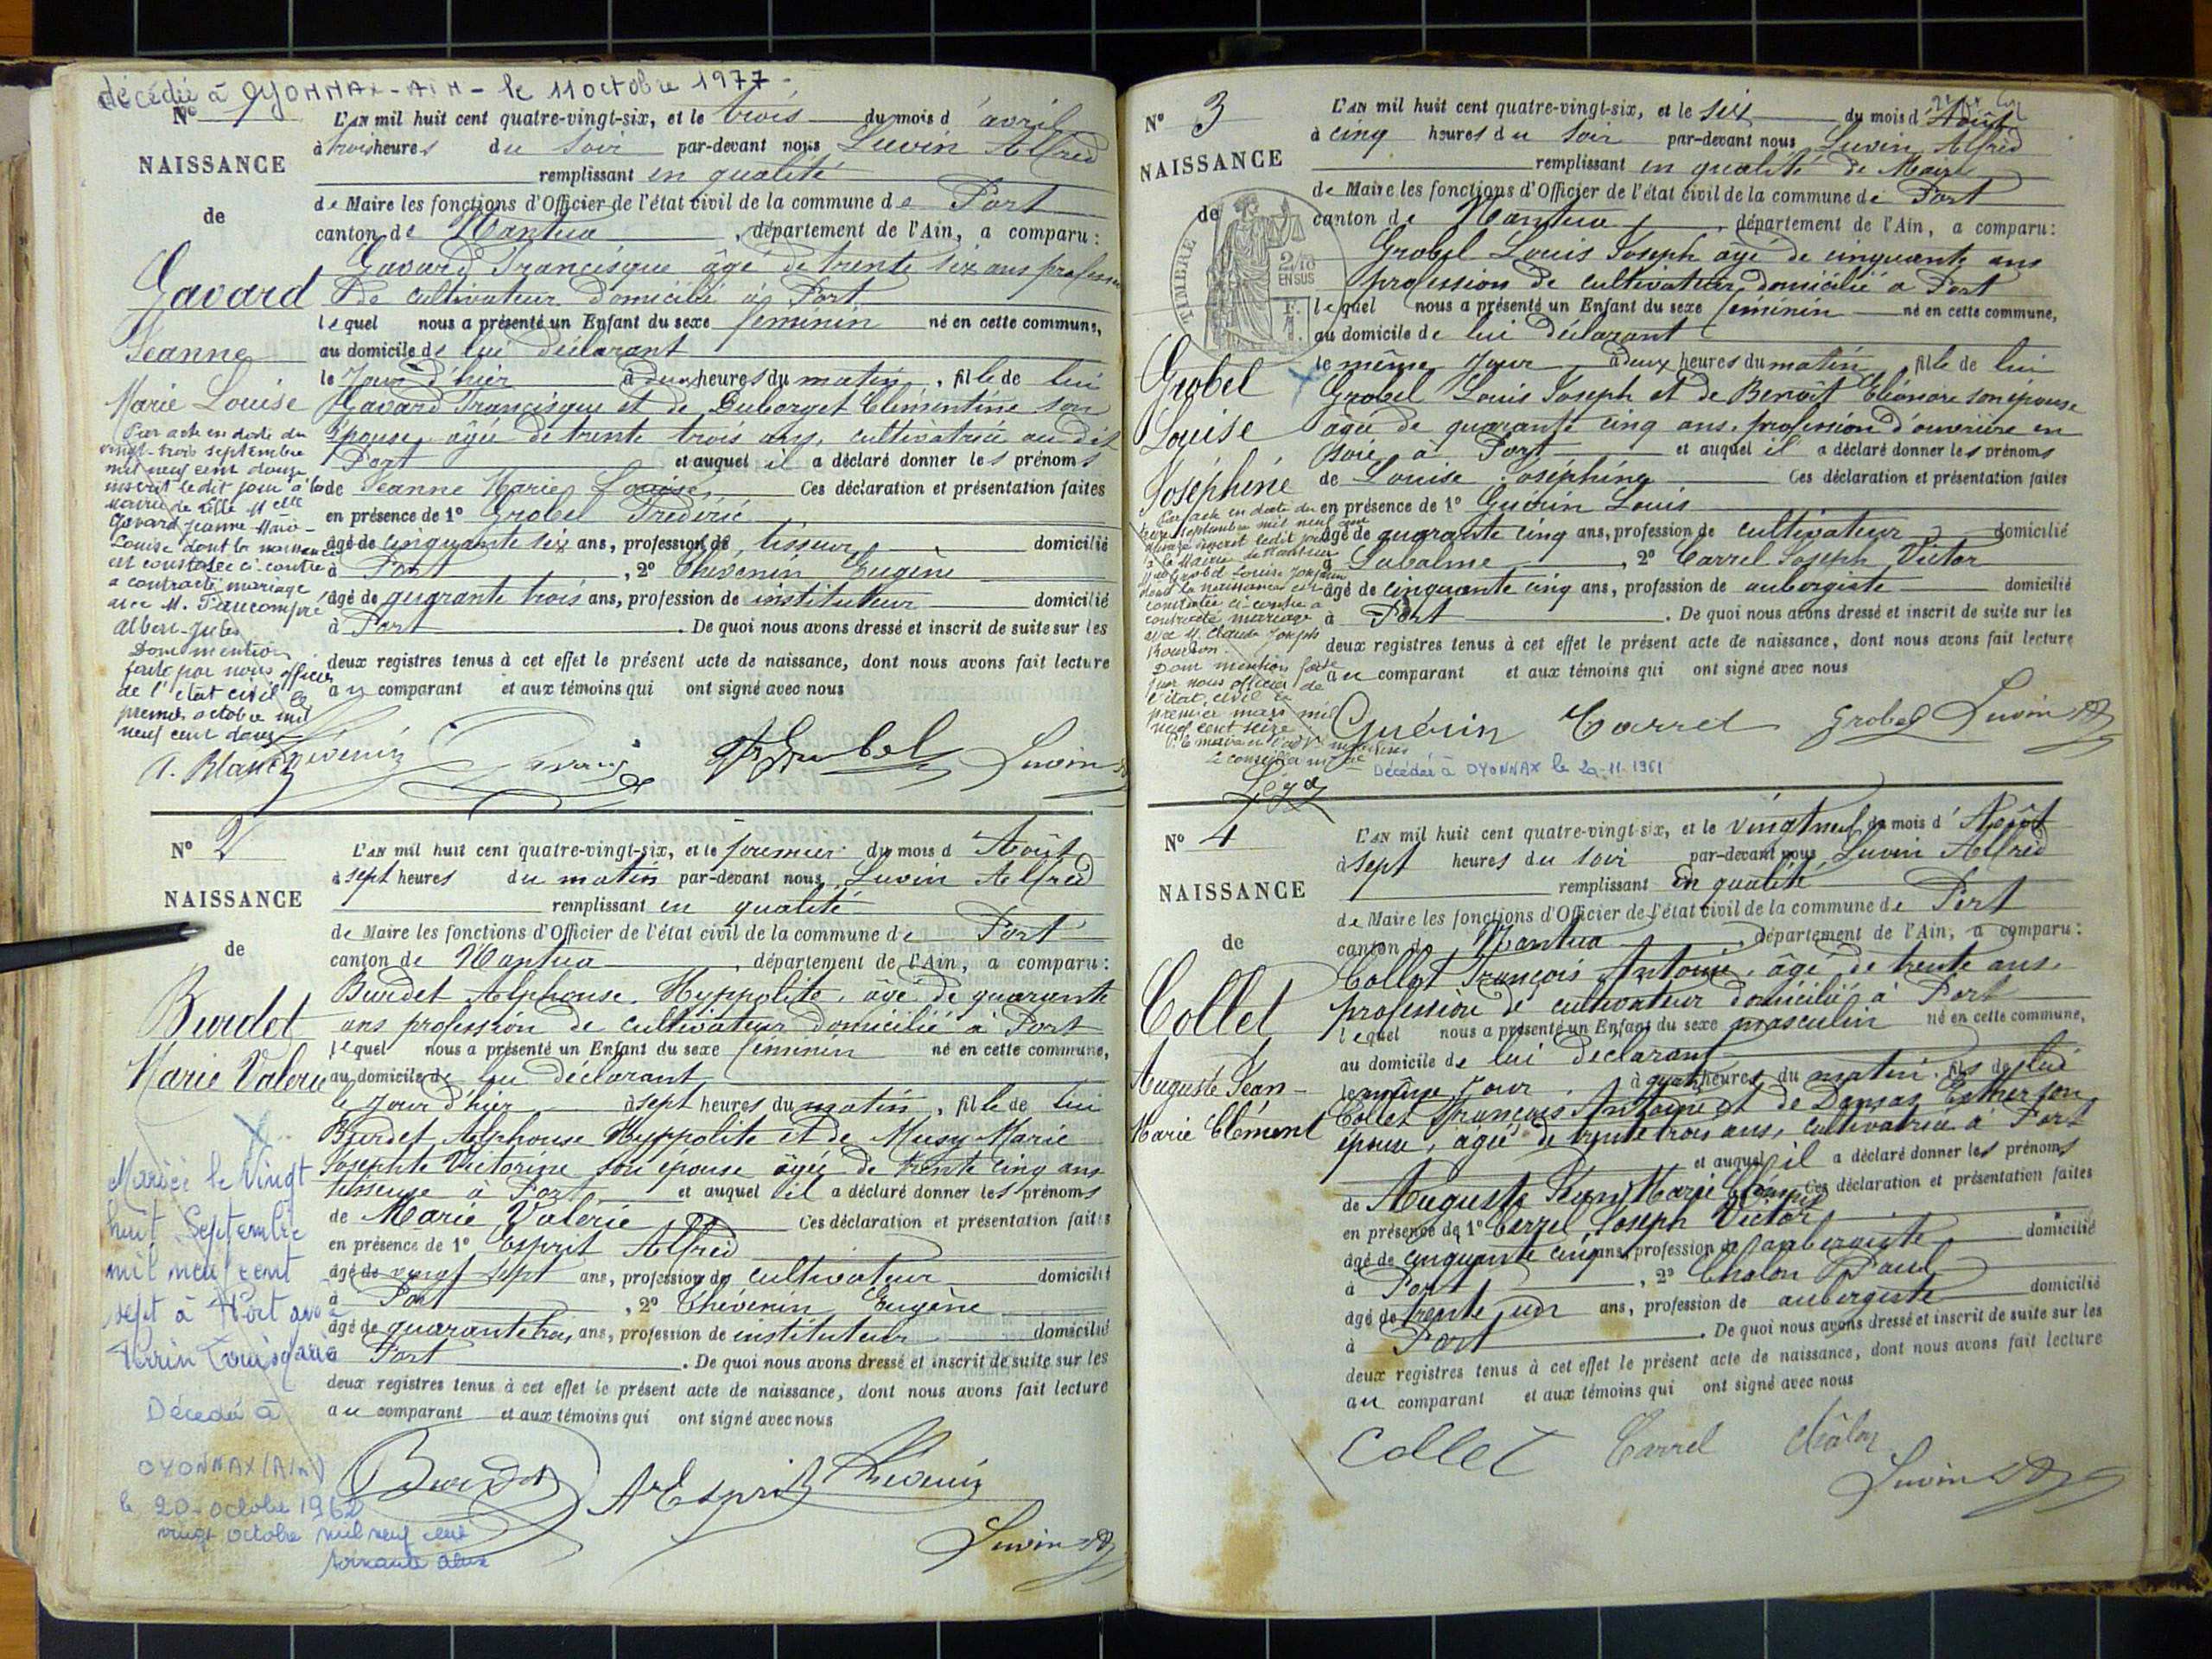 décédée à OYONNAX-AIN - le 11 octobre 1977 -
Nº 1
NAISSANCE
de
Gavard
Jeanne
Marie Louise
Par acte en date du
vingt-trois septembre
mil neuf cent douze
inscrit le dit jour à la
Mairie de Melle
Gavard Jeanne-Marie-
Louise dont la naissance
est constatée ci-contre
a contracté mariage
avec M. Faucompré
Albert-Jules
Dont mention
faite par nous officier
de l'état civil le
premier octobre mil
neuf cent douze
A. Blanc
L'AN mil huit cent quatre-vingt-six, et le trois du mois d'avril
à trois heures du soir par-devant nous Luvin Alfred
remplissant en qualité
de Maire les fonctions d'Officier de l'état civil de la commune de Port
canton de Nantua, département de l'Ain, a comparu:
Gavard Francisque âgé de trente six ans profession
de cultivateur domicilié à Port
lequel nous a présenté un Enfant du sexe féminin né en cette commune,
au domicile de lui déclarant
le jour d'hier à deux heures du matin, fille de lui
Gavard Francisque et de Duborget Clémentine son
épouse, âgée de trente trois ans, cultivatrice au dit
Port et auquel il a déclaré donner les prénoms
de Jeanne Marie Louise Ces déclaration et présentation faites
en présence de 1º Grobel Frédéric
âgé de cinquante six ans, profession de tisseur domicilié
à Port, 2º Thévenin Eugène
âgé de quarante trois ans, profession de instituteur domicilié
à Port. De quoi nous avons dressé et inscrit de suite sur les
deux registres tenus à cet effet le présent acte de naissance, dont nous avons fait lecture
au comparant et aux témoins qui ont signé avec nous
Thévenin Gavard Grobel Luvin
Nº 2
NAISSANCE
de
Burdet
Marie Valérie
Mariée le vingt
huit Septembre
mil neuf cent
sept à Port avec
Perrin
Décédé à
OYONNAX (Ain)
le 20 octobre 1962
vingt octobre mil neuf cent
soixante deux
L'AN mil huit cent quatre-vingt-six, et le premier du mois d'Août
à sept heures du matin par-devant nous Luvin Alfred
remplissant en qualité
de Maire les fonctions d'Officier de l'état civil de la commune de Port
canton de Nantua, département de l'Ain, a comparu:
Burdet Alphonse Hyppolite, âgé de quarante
ans profession de cultivateur domicilié à Port
lequel nous a présenté un Enfant du sexe féminin né en cette commune,
au domicile de lui déclarant
le jour d'hier à sept heures du matin, fille de lui
Burdet Alphonse Hyppolite et de Musy Marie
Josephte Victorine son épouse âgée de trente cinq ans
tisseuse à Port et auquel il a déclaré donner les prénoms
de Marie Valérie Ces déclaration et présentation faites
en présence de 1º Esprit Alfred
âgé de vingt sept ans, profession de cultivateur domicilié
à Port, 2º Thévenin Eugène
âgé de quarante trois ans, profession de instituteur domicilié
à Port. De quoi nous avons dressé et inscrit de suite sur les
deux registres tenus à cet effet le présent acte de naissance, dont nous avons fait lecture
au comparant et aux témoins qui ont signé avec nous
Burdet A Esprit Thévenin
Luvin
Nº 3
NAISSANCE
de
TIMBRE
2/10
EN SUS
Grobel
Louise
Joséphine
Par acte en date du
septembre mil neuf cent
inscrit ledit jour
à la Mairie de Nantua
Grobel Louise Joséphine
dont la naissance est
constatée ci-contre a
contracté mariage
avec M. Claude Joseph
Dont mention faite
par nous officier de
l'état civil le
premier mars mil
neuf cent seize
L'AN mil huit cent quatre-vingt-six, et le six du mois d'Août
à cinq heures du soir par-devant nous Luvin Alfred
remplissant en qualité de Maire
de Maire les fonctions d'Officier de l'état civil de la commune de Port
canton de Nantua, département de l'Ain, a comparu:
Grobel Louis Joseph âgé de cinquante ans
profession de cultivateur domicilié à Port
lequel nous a présenté un Enfant du sexe féminin né en cette commune,
au domicile de lui déclarant
le même jour à deux heures du matin fille de lui
Grobel Louis Joseph et de Benoît Eléonore son épouse
âgée de quarante cinq ans, profession d'ouvrière en
soie à Port et auquel il a déclaré donner les prénoms
de Louise Joséphine Ces déclaration et présentation faites
en présence de 1º Guérin Louis
âgé de quarante cinq ans, profession de cultivateur domicilié
à Labalme, 2º Carrel Joseph Victor
âgé de cinquante cinq ans, profession de aubergiste domicilié
à Port. De quoi nous avons dressé et inscrit de suite sur les
deux registres tenus à cet effet le présent acte de naissance, dont nous avons fait lecture
au comparant et aux témoins qui ont signé avec nous
Guérin Carrel Grobel Luvin
Décédée à OYONNAX le 20-11-1961
Nº 4
NAISSANCE
de
Collet
Auguste Jean-
Marie Clément
L'AN mil huit cent quatre-vingt-six, et le vingt neuf du mois d'Août
à sept heures du soir par-devant nous Luvin Alfred
remplissant en qualité
de Maire les fonctions d'Officier de l'état civil de la commune de Port
canton de Nantua, département de l'Ain, a comparu:
Collet François Antoine, âgé de trente ans,
profession de cultivateur domicilié à Port
lequel nous a présenté un Enfant du sexe masculin né en cette commune,
au domicile de lui déclarant
le même jour à quatre heures du matin, fils de lui
Collet François Antoine et de Dansas Esther son
épouse, âgée de trente trois ans, cultivatrice à Port
et auquel il a déclaré donner les prénoms
de Auguste Jean Marie Clément Ces déclaration et présentation faites
en présence de 1º Carrel Joseph Victor
âgé de cinquante cinq ans, profession de aubergiste domicilié
à Port, 2º Chalon Paul
âgé de trente un ans, profession de aubergiste domicilié
à Port. De quoi nous avons dressé et inscrit de suite sur les
deux registres tenus à cet effet le présent acte de naissance, dont nous avons fait lecture
au comparant et aux témoins qui ont signé avec nous
Collet Carrel Châlon
Luvin